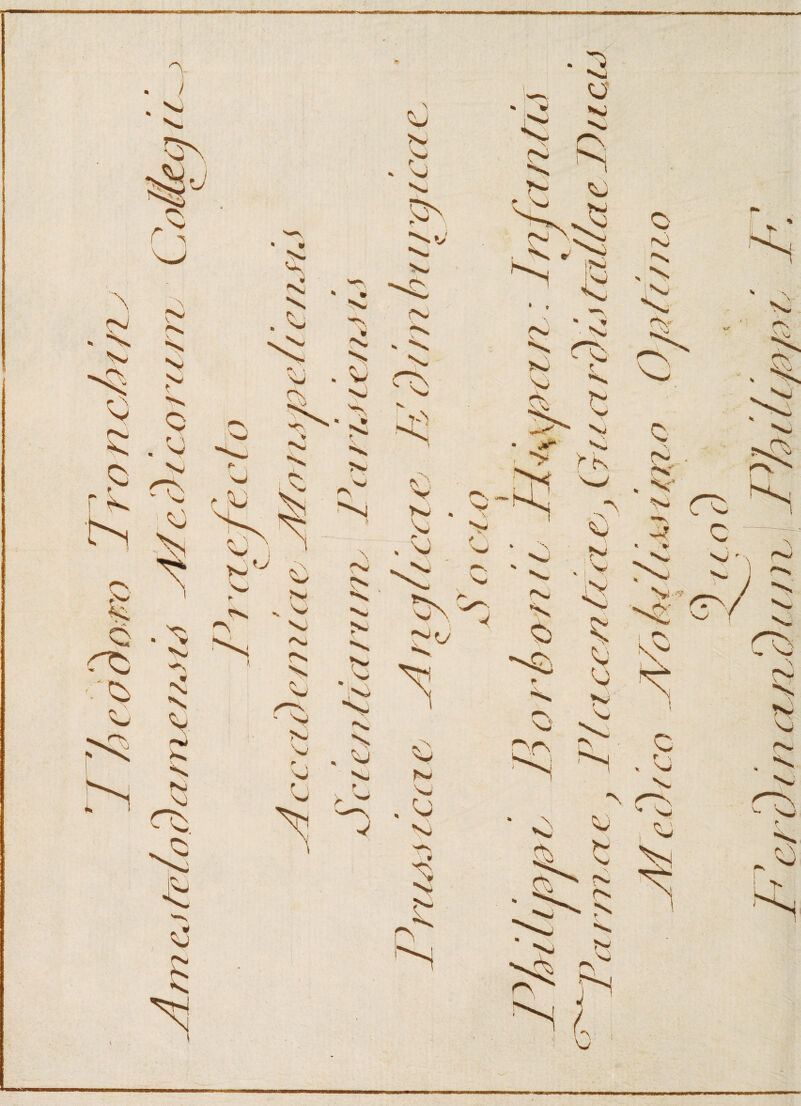 Theodoro Tronchin
Amestelodamensis Medicorum Collegii
Praefecto
Accademiae Monspeliensis
Scientiarum Parisiensis
Prussicae Anglicae Edimburgicae
Socio
Philippi Borbonii Hispan: Infantis
Parmae, Placentiae, Guardistallae Ducis
Medico Nobilissimo Optimo
Quod
Ferdinandum Philippi F.